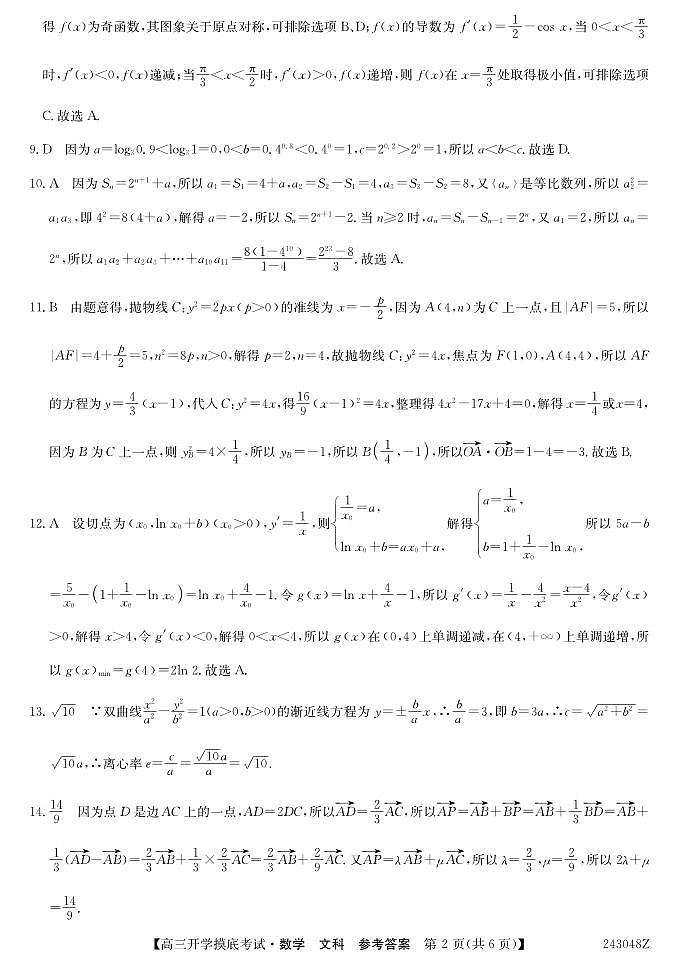 得 f(x)为奇函数,其图象关于原点对称,可排除选项 B、D;f(x)的导数为 f′(x)=1/2−cos x,当 0<x<π/3
时,f′(x)<0,f(x)递减;当π/3<x<π/2时,f′(x)>0,f(x)递增,则 f(x)在 x=π/3处取得极小值,可排除选项
C.故选 A.
9. D 因为 a=log₃0.9<log₃1=0,0<b=0.4^0.8<0.4^0=1,c=2^0.2>2^0=1,所以 a<b<c.故选 D.
10. A 因为 Sₙ=2ⁿ⁺¹+a,所以 a₁=S₁=4+a,a₂=S₂−S₁=4,a₃=S₃−S₂=8,又{aₙ}是等比数列,所以 a₂²=
a₁a₃,即 4²=8(4+a),解得 a=−2,所以 Sₙ=2ⁿ⁺¹−2.当 n≥2 时,aₙ=Sₙ−Sₙ₋₁=2ⁿ,又 a₁=2,所以 aₙ=
2ⁿ,所以 a₁a₂+a₂a₃+⋯+a₁₀a₁₁=8(1−4¹⁰)/(1−4)=(2²³−8)/3.故选 A.
11. B 由题意得,抛物线 C:y²=2px(p>0)的准线为 x=−p/2,因为 A(4,n)为 C 上一点,且|AF|=5,所以
|AF|=4+p/2=5,n²=8p,n>0,解得 p=2,n=4,故抛物线 C:y²=4x,焦点为 F(1,0),A(4,4),所以 AF
的方程为 y=4/3(x−1),代入 C:y²=4x,得16/9(x−1)²=4x,整理得 4x²−17x+4=0,解得 x=1/4或x=4,
因为 B 为 C 上一点,则 y_B²=4×1/4,所以 y_B=−1,所以 B(1/4,−1),所以→OA·→OB=1−4=−3.故选 B.
12. A 设切点为(x₀,ln x₀+b)(x₀>0),y′=1/x,则{1/x₀=a, ln x₀+b=ax₀+a, 解得{a=1/x₀, b=1+1/x₀−ln x₀, 所以 5a−b
=5/x₀−(1+1/x₀−ln x₀)=ln x₀+4/x₀−1.令 g(x)=ln x+4/x−1,所以 g′(x)=1/x−4/x²=(x−4)/x²,令g′(x)
>0,解得 x>4,令 g′(x)<0,解得 0<x<4,所以 g(x)在(0,4)上单调递减,在(4,+∞)上单调递增,所
以 g(x)min=g(4)=2ln 2.故选 A.
13. √10 ∵双曲线x²/a²−y²/b²=1(a>0,b>0)的渐近线方程为 y=±b/a x,∴b/a=3,即 b=3a,∴c=√(a²+b²)=
√10a,∴离心率 e=c/a=√10a/a=√10.
14. 14/9 因为点 D 是边 AC 上的一点,AD=2DC,所以→AD=2/3→AC,所以→AP=→AB+→BP=→AB+1/3→BD=→AB+
1/3(→AD−→AB)=2/3→AB+1/3×2/3→AC=2/3→AB+2/9→AC.又→AP=λ→AB+μ→AC,所以 λ=2/3,μ=2/9,所以 2λ+μ
=14/9.
【高三开学摸底考试·数学 文科 参考答案 第 2 页(共 6 页)】 243048Z